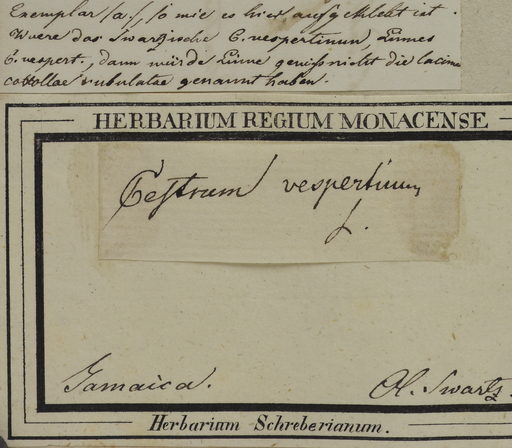 Exemplar /a./, so wie es hier aufgeklebt ist.
Waere das Swartzische C. vespertinum Linnes
C. vespert., dann würde Linne gewiss nicht die lacin
corollae subulatae genannt haben.
HERBARIUM REGIUM MONACENSE
Cestrum vespertinum
L.
Jamaica.
Ol. Swartz.
Herbarium Schreberianum.